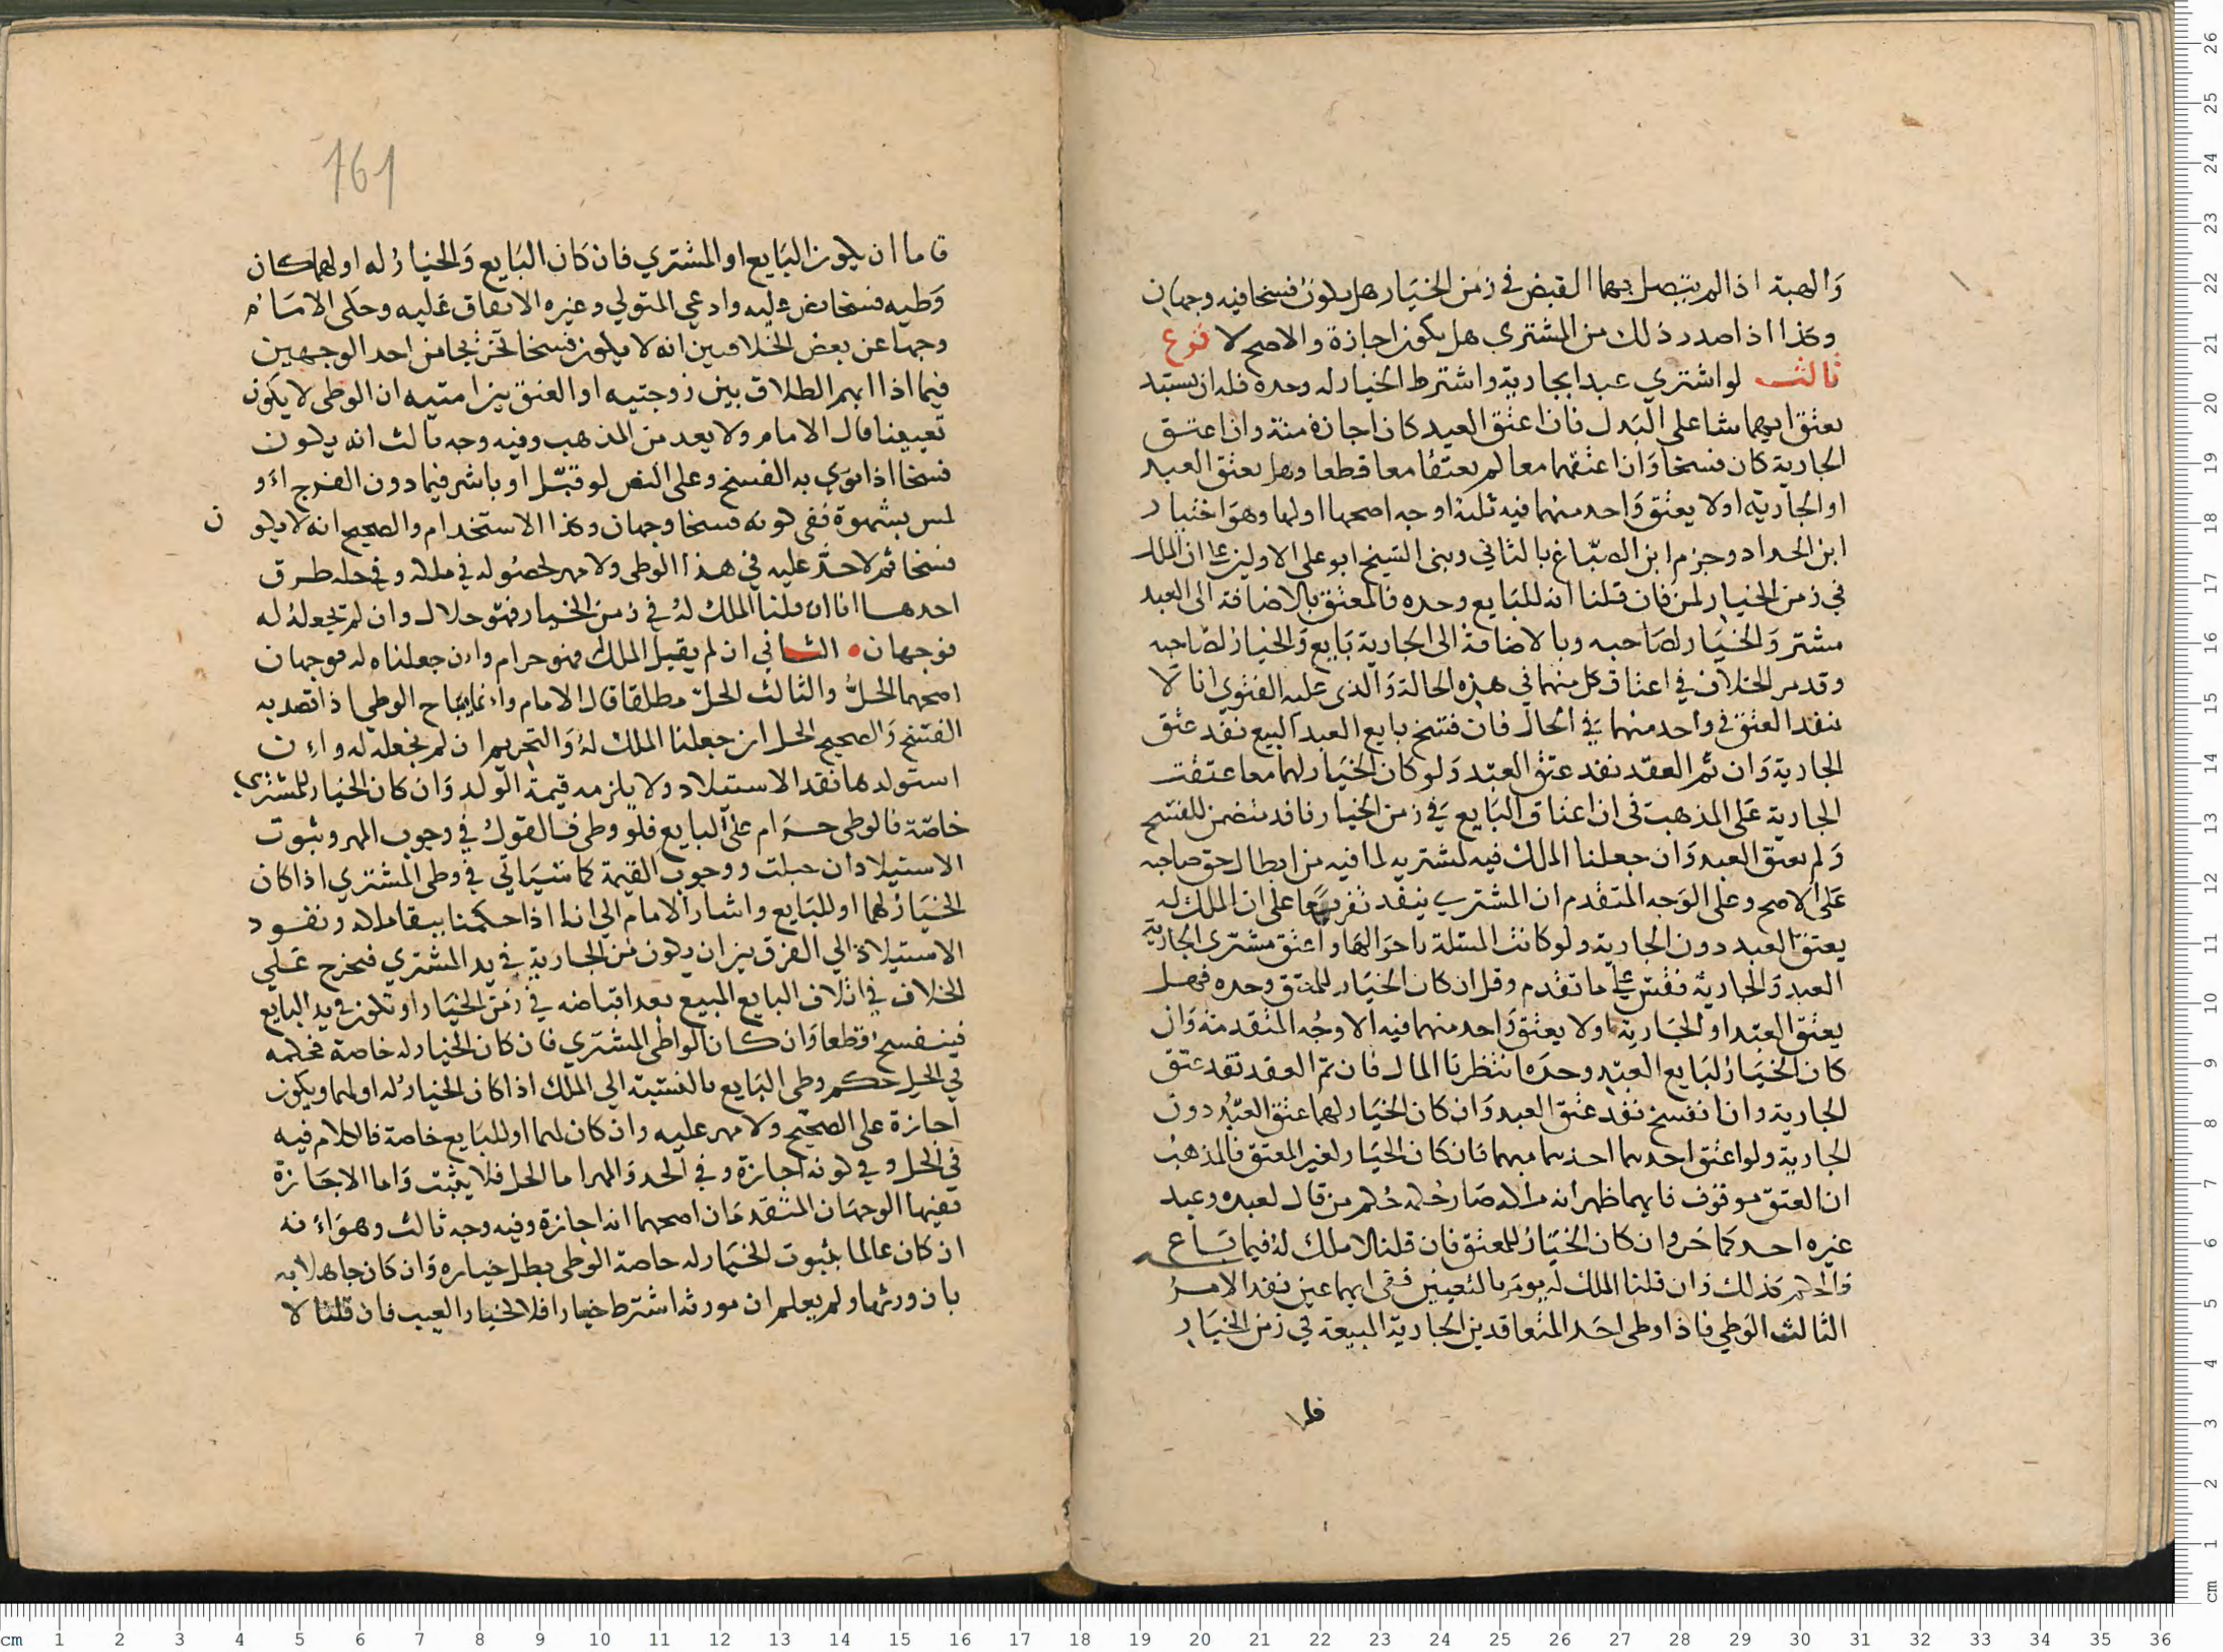 والهبة اذا لم يتصل بهما القبض في زمن الخيار هل يكون فسخا فيه وجهان
وكذا اذا صدر ذلك من المشتري هل يكون اجازة والاصح لا فرع
ثالث لو اشتري عبدا بجارية واشترط الخيار له وحده فله ان يستبد
بعتق ايهما شا على البدل فان اعتق العبد كان اجازة منة وان اعتق
الجارية كان فسخا وان اعتقهما معا لم يعتقا معا قطعا وهل يعتق العبد
او الجارية او لا يعتق واحد منهما فيه ثلثة اوجه اصحها اولها وهو اختيار
ابن الحداد وجزم ابن الصباغ بالثاني وبنى الشيخ ابو على الاولين على ان الملك
في زمن الخيار لمن فان قلنا انه للبايع وحده فالمعتق بالاضافة الى العبد
مشتر والخيار لصاحبه وبالاضافة الى الجارية بايع والخيار لصاحبه
وقد مر الخلاف في اعتاق كل منهما في هذه الحالة والذى عليه الفتوى انا لا
ننفد العتق في واحد منهما في الحال فان فسخ بايع العبد البيع نفد عتق
الجارية وان تم العقد نفد عتق العبد ولو كان الخيار لهما معا عتقت
الجارية على المذهب في ان اعتاق البايع في زمن الخيار نافد متضمن للفسخ
ولم يعتق العبد وان جعلنا الملك فيه لمشتريه لما فيه من ابطال حق صاحبه
على الاصح وعلى الوجه المتقدم ان المشتري ينفد تفريعا على ان الملك له
يعتق العبد دون الجارية ولو كانت المسئلة باحوالها واعتق مشترى الجارية
العبد والجارية فقس على ما تقدم وقل ان كان الخيار للمعتق وحده فهل
يعتق العبد او الجارية او لا يعتق واحد منهما فيه الاوجه المتقدمة وان
كان الخيار لبايع العبد وحده انتظرنا المال فان تم العقد نفد عتق
الجارية وان انفسخ نفد عتق العبد وان كان الخيار لهما عتق العبد دون
الجارية ولو اعتق احدهما احدهما مبهما فان كان الخيار لغير المعتق فالمذهب
ان العتق موقوف فايهما ظهر انه ملكه صار حكمه حكم من قال لعبده وعبد
غيره احدكما حر وان كان الخيار للمعتق فان قلنا لا ملك له فيما باع
فالحكم كذلك وان قلنا الملك له يومر بالتعيين ففى ايهما عين نفد الامر
الثالث الوطي فاذا وطى احد المتعاقدين الجارية المبيعة في زمن الخيار
فا
161
فاما ان يكون البايع او المشتري فان كان البايع والخيار له او لهما كان
وطيه فسخا نص عليه وادعي المتولي وغيره الاتفاق عليه وحكى الامام
وجها عن بعض الخلافيين انه لا يكون فسخا تخريجا من احد الوجهين
فيما اذا ابهم الطلاق بين زوجتيه او العتق بين امتيه ان الوطى لا يكون
تعيينا قال الامام ولا يعد من المذهب وفيه وجه ثالث انه يكون
فسخا اذا نوي به الفسخ وعلى النص لو قبل او باشر فيما دون الفرج او
لمس بشهوة ففى كونه فسخا وجهان وكذا الاستخدام والصحيح انه لا يكو ن
فسخا ثم لا حد عليه في هذا الوطى ولا مهر لحصوله في ملكه وفي حله طرق
احدها انا ان قلنا الملك له في زمن الخيار فهو حلال وان لم نجعله له
فوجهان الثاني ان لم يقبل الملك فهو حرام وان جعلناه له فوجهان
اصحهما الحل والثالث الحل مطلقا قال الامام وانما يباح الوطي اذا قصد به
الفسخ والصحيح الحل ان جعلنا الملك له والتحريم ان لم نجعله له وان
استولدها نفد الاستيلاد ولا يلزمه قيمة الولد وان كان الخيار للمشترى
خاصة فالوطى حرام على البايع فلو وطى فالقول في وجوب المهر وثبوت
الاستيلاد ان حبلت ووجوب القيمة كما سياتي في وطى المشتري اذا كان
الخيار لهما او للبايع واشار الامام الي انا اذا حكمنا ببقا ملكه ونفود
الاستيلاد الي الفرق بين ان يكون من الجارية في يد المشتري فيخرج على
الخلاف في اتلاف البايع المبيع بعد اقباضه في زمن الخيار او تكون في يد البايع
فينفسخ قطعا وان كان الواطى المشتري فان كان الخيار له خاصة فحكمه
في الحل حكم وطى البايع بالنسبة الي الملك اذا كان الخيار له او لهما ويكون
اجازة على الصحيح ولا مهر عليه وان كان لهما او للبايع خاصة فالكلام فيه
في الحل وفي كونه اجازة وفي الحد والمهر اما الحل فلا يثبت واما الاجازة
ففيها الوجهان المتقدمان اصحهما انه اجازة وفيه وجه ثالث وهو انه
ان كان عالما بثبوت الخيار له خاصة الوطى بطل خياره وان كان جاهلا به
بان ورثها ولم يعلم ان مورثه اشترط خيارا فلا لخيار العيب فان قلنا لا